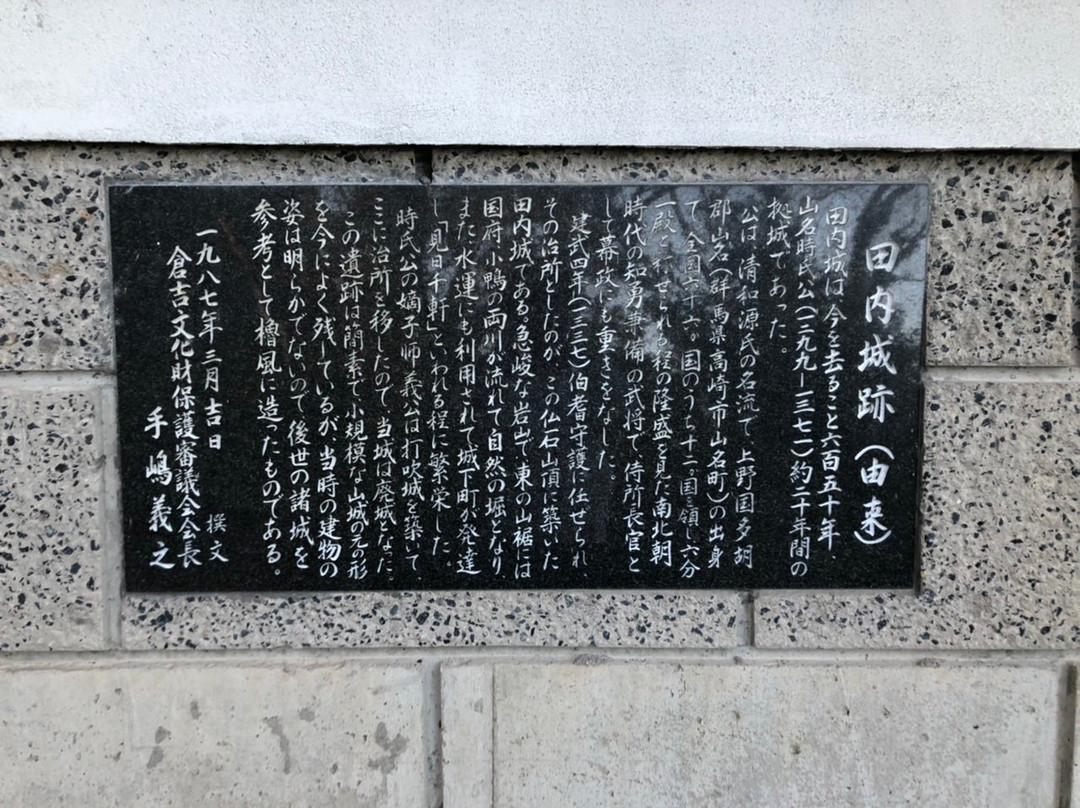 田内城跡（由来）
田内城は、今を去ること六百五十年、
山名時氏公（一二九九ー一三七一）約二十年間の
拠城であった。
公は、清和源氏の名流で、上野国多胡
郡山名（群馬県高崎市山名町）の出身
で、全国六十六ヶ国のうち十二ヶ国を領し六分
一殿と称せられる程の隆盛を見た南北朝
時代の知勇兼備の武将で、侍所長官と
して幕政にも重きをなした。
建武四年（一三三七）伯耆守護に任せられ、
その治所としたのが、この仏石山頂に築いた
田内城である。急峻な岩山で、東の山裾には
国府、小鴨の両川が流れて自然の堀となり、
また、水運にも利用されて城下町が発達
し「見日千軒」といわれる程に繁栄した。
時氏公の嫡子師義公は打吹城を築いて、
ここに治所を移したので、当城は廃城となった。
この遺跡は簡素で、小規模な山城の元の形
を今によく残しているが、当時の建物の
姿は明らかでないので、後世の諸城を
参考として櫓風に造ったものである。
一九八七年三月吉日
撰文
倉吉文化財保護審議会会長
手嶋義之